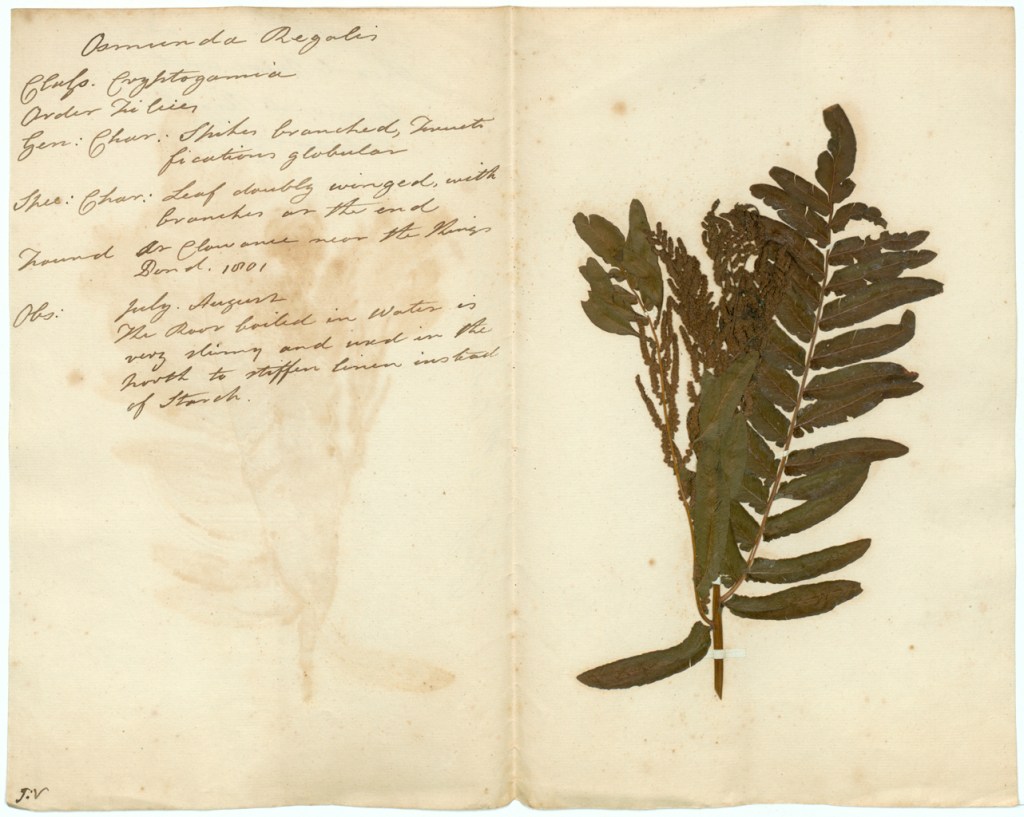 Osmunda Regalis
Class. Cryptogamia
Order Filices
Gen: Char: Spikes branched, Fructi
fications globular
Spec: Char: Leaf doubly winged, with
branches at the end
Found At Clowance near the Kings
Pond. 1801
Obs: July. August
The Root boiled in Water is
very slimy and used in the
North to stiffen linen instead
of Starch.
F:V